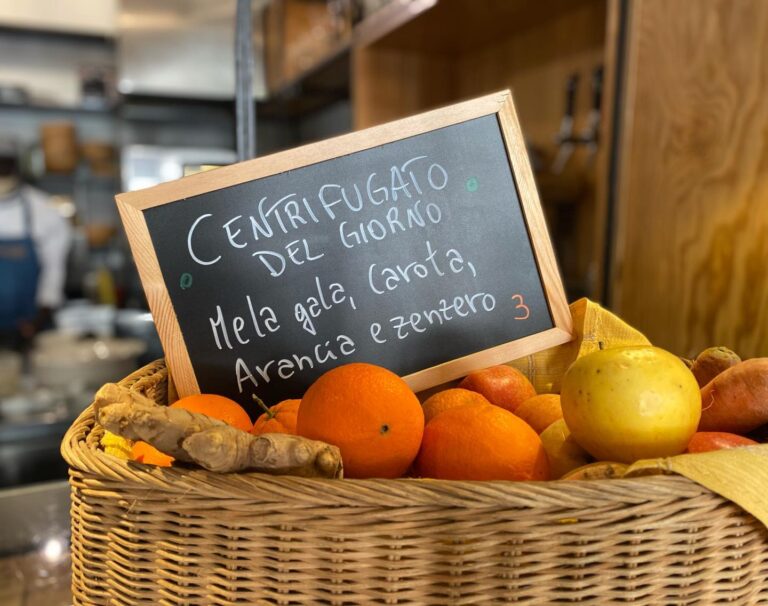 CENTRIFUGATO
DEL GIORNO
Mela gala, Carota,
Arancia e zenzero 3